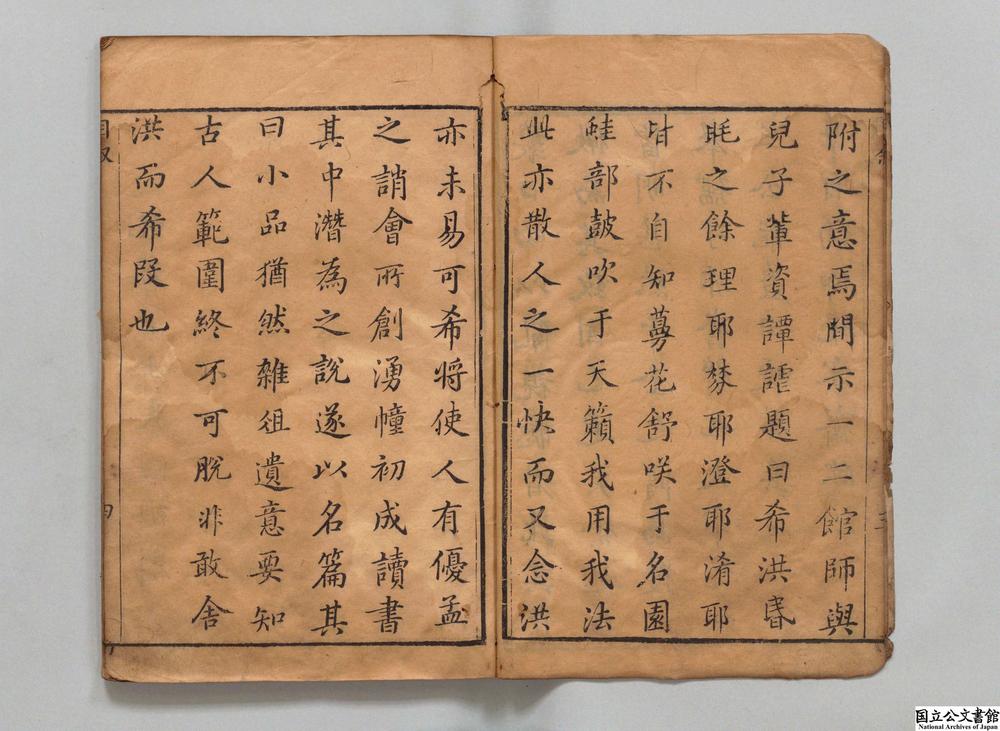 附之意焉間示一二館師與
兒子輩資譚謔題曰希洪昏
眊之餘理耶棼耶澄耶淆耶
皆不自知蕚花舒咲于名園
鮭部鼓吹于天籟我用我法
此亦散人之一快而又念洪
亦未易可希将使人有優孟
之誚會所創湧幢初成讀書
其中潛為之說遂以名篇其
曰小品猶然雜俎遺意要知
古人範圍終不可脫非敢舎
洪而希叚也
自叙
四
三
国立公文書館
National Archives of Japan